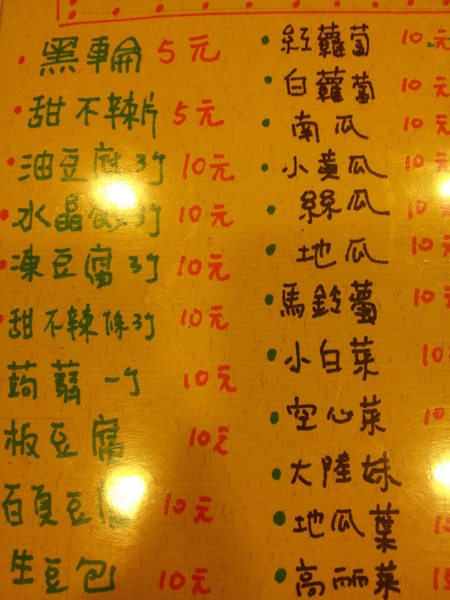 黑輪 5元
甜不辣片 5元
油豆腐 3个 10元
水晶餃 3个 10元
凍豆腐 3个 10元
甜不辣條 3个 10元
蒟蒻 一个 10元
板豆腐 10元
百頁豆腐 10元
生豆包 10元
紅蘿蔔 10元
白蘿蔔 10元
南瓜 10元
小黃瓜 10元
絲瓜 10
地瓜 10元
馬鈴薯 10元
小白菜 10
空心菜 10
大陸妹
地瓜葉
高丽菜